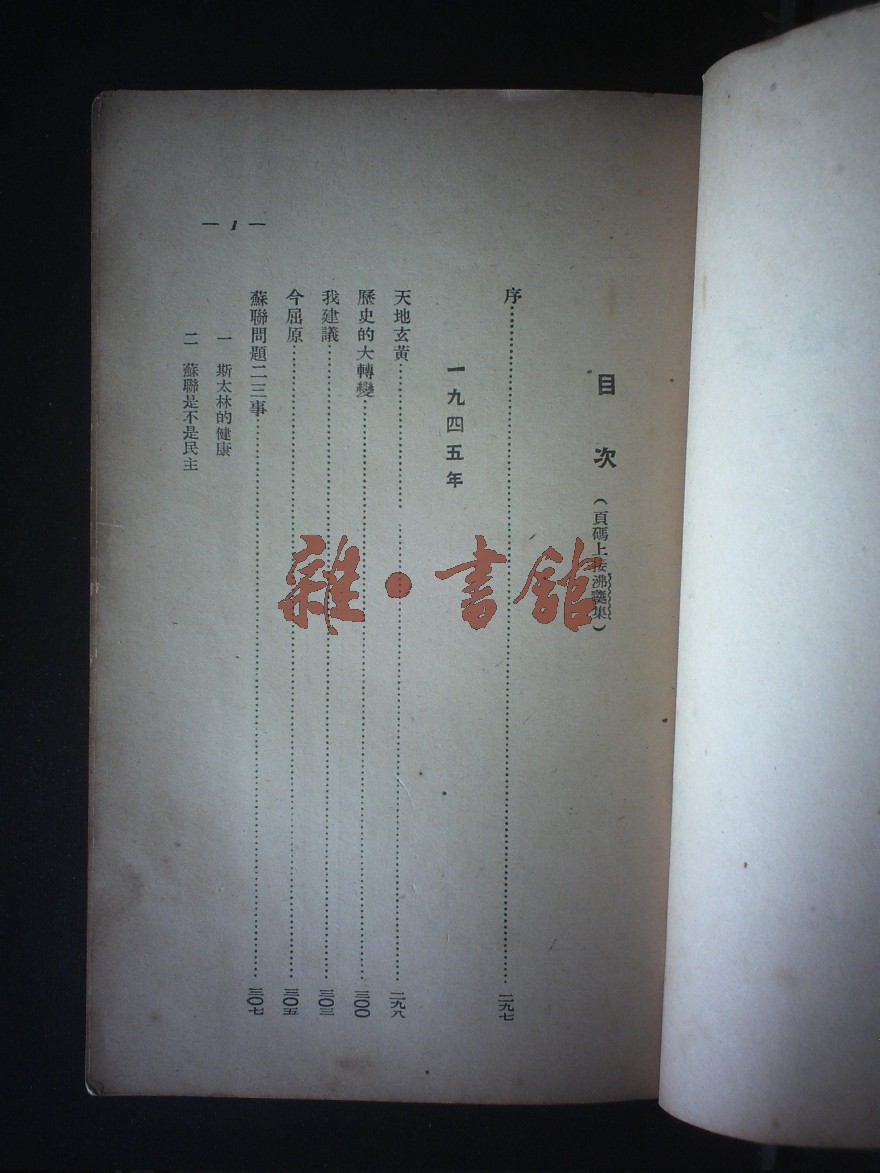 目次(頁碼上接沸羹集)
序……二九七
一九四五年
天地玄黃……二九八
歷史的大轉變……三〇〇
我建議……三〇三
今屈原……三〇五
蘇聯問題二三事……三〇七
一 斯太林的健康
二 蘇聯是不是民主
— 1 —
雜·書館